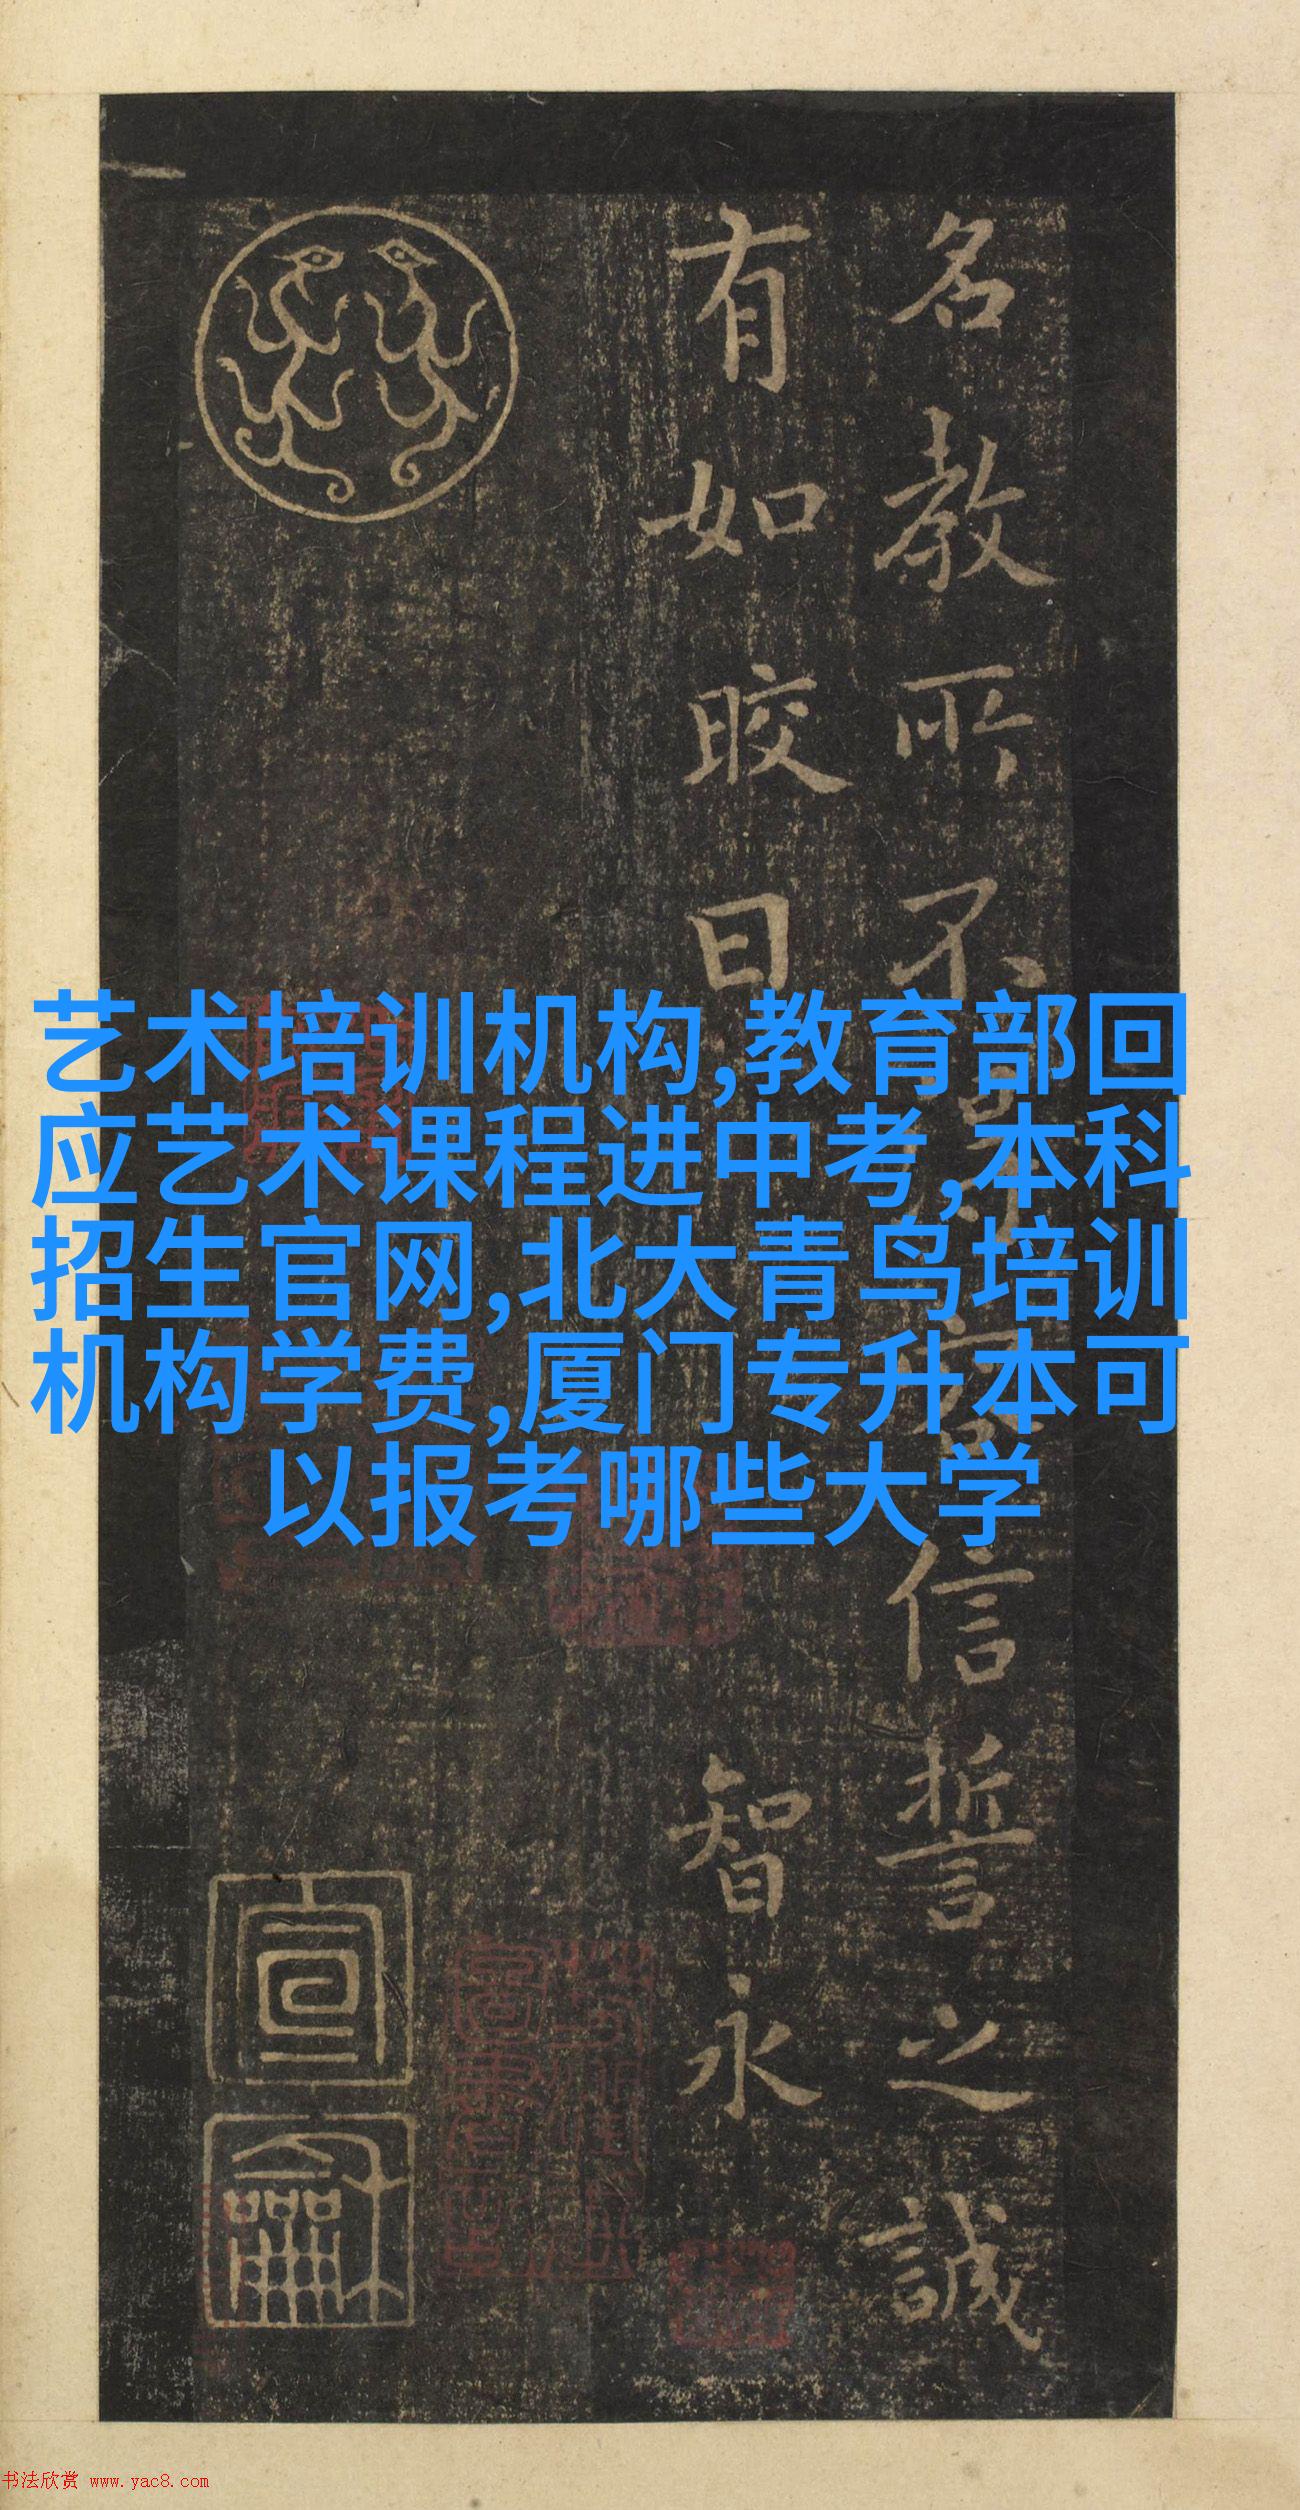 名教所不
信誓之誠
有如皎日
智永
艺术培训机构,教育部回
应艺术课程进中考,本科
招生官网,北大青鸟培训
机构学费,厦门专升本可
以报考哪些大学
书法欣赏 www.yac8.com